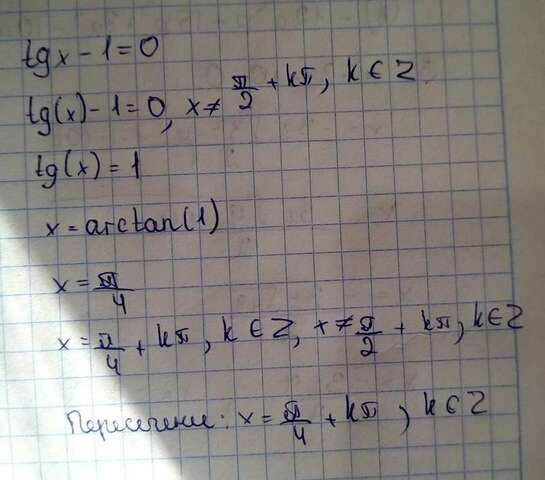 tgx - 1 = 0
tg(x) - 1 = 0, x ≠ π/2 + kπ, k ∈ Z
tg(x) = 1
x = arctan(1)
x = π/4
x = π/4 + kπ, k ∈ Z, x ≠ π/2 + kπ, k ∈ Z
Пересечение: x = π/4 + kπ, k ∈ Z